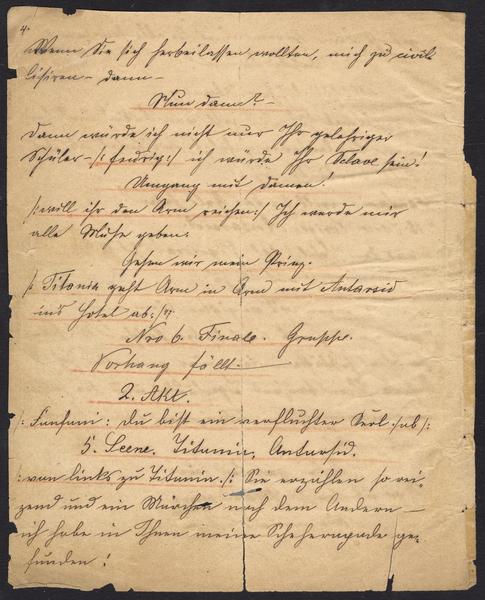 4.
Wenn Sie sich herbeilassen wollten, mich zu civili
lisiren – dann –
Nun dann? –
Dann würde ich nicht nur Ihr gelehriger
Schüler – /: feurig :/ ich würde Ihr Sclave sein!
Umgang mit Damen!
/: will ihr den Arm reichen :/ Ich werde mir
alle Mühe geben.
Gehen wir mein Prinz.
/: Titania geht Arm in Arm mit Antarsid
ins Hotel ab :/
Nro 6. Finale. Gruppe.
Vorhang fällt.
2. Akt.
/: Fanfani: Du bist ein verfluchter Kerl :/ab/:
5. Scene. Titania, Antarsid.
/: von links zu Titania :/: Sie erzählen so rei,
zend und ein Märchen nach dem Andern –
ich habe in Ihnen meine Scheherazade ge,
funden!